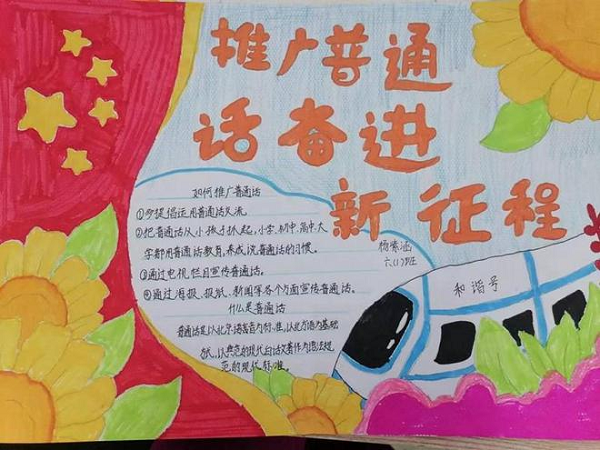 推广普通
话奋进
新征程
如何推广普通话
①多提倡运用普通话交流。
②把普通话从小孩子抓起,小学.初中.高中.大
学都用普通话教育,养成说普通话的习惯。
③通过电视栏目宣传普通话。
④通过海报、报纸、新闻等各个方面宣传普通话。
什么是普通话
普通话是以北京语音为标准,以北方话为基础
以典范的现代白话文著作为语法规
范的现代标准
杨紫涵
六(1)班
和谐号